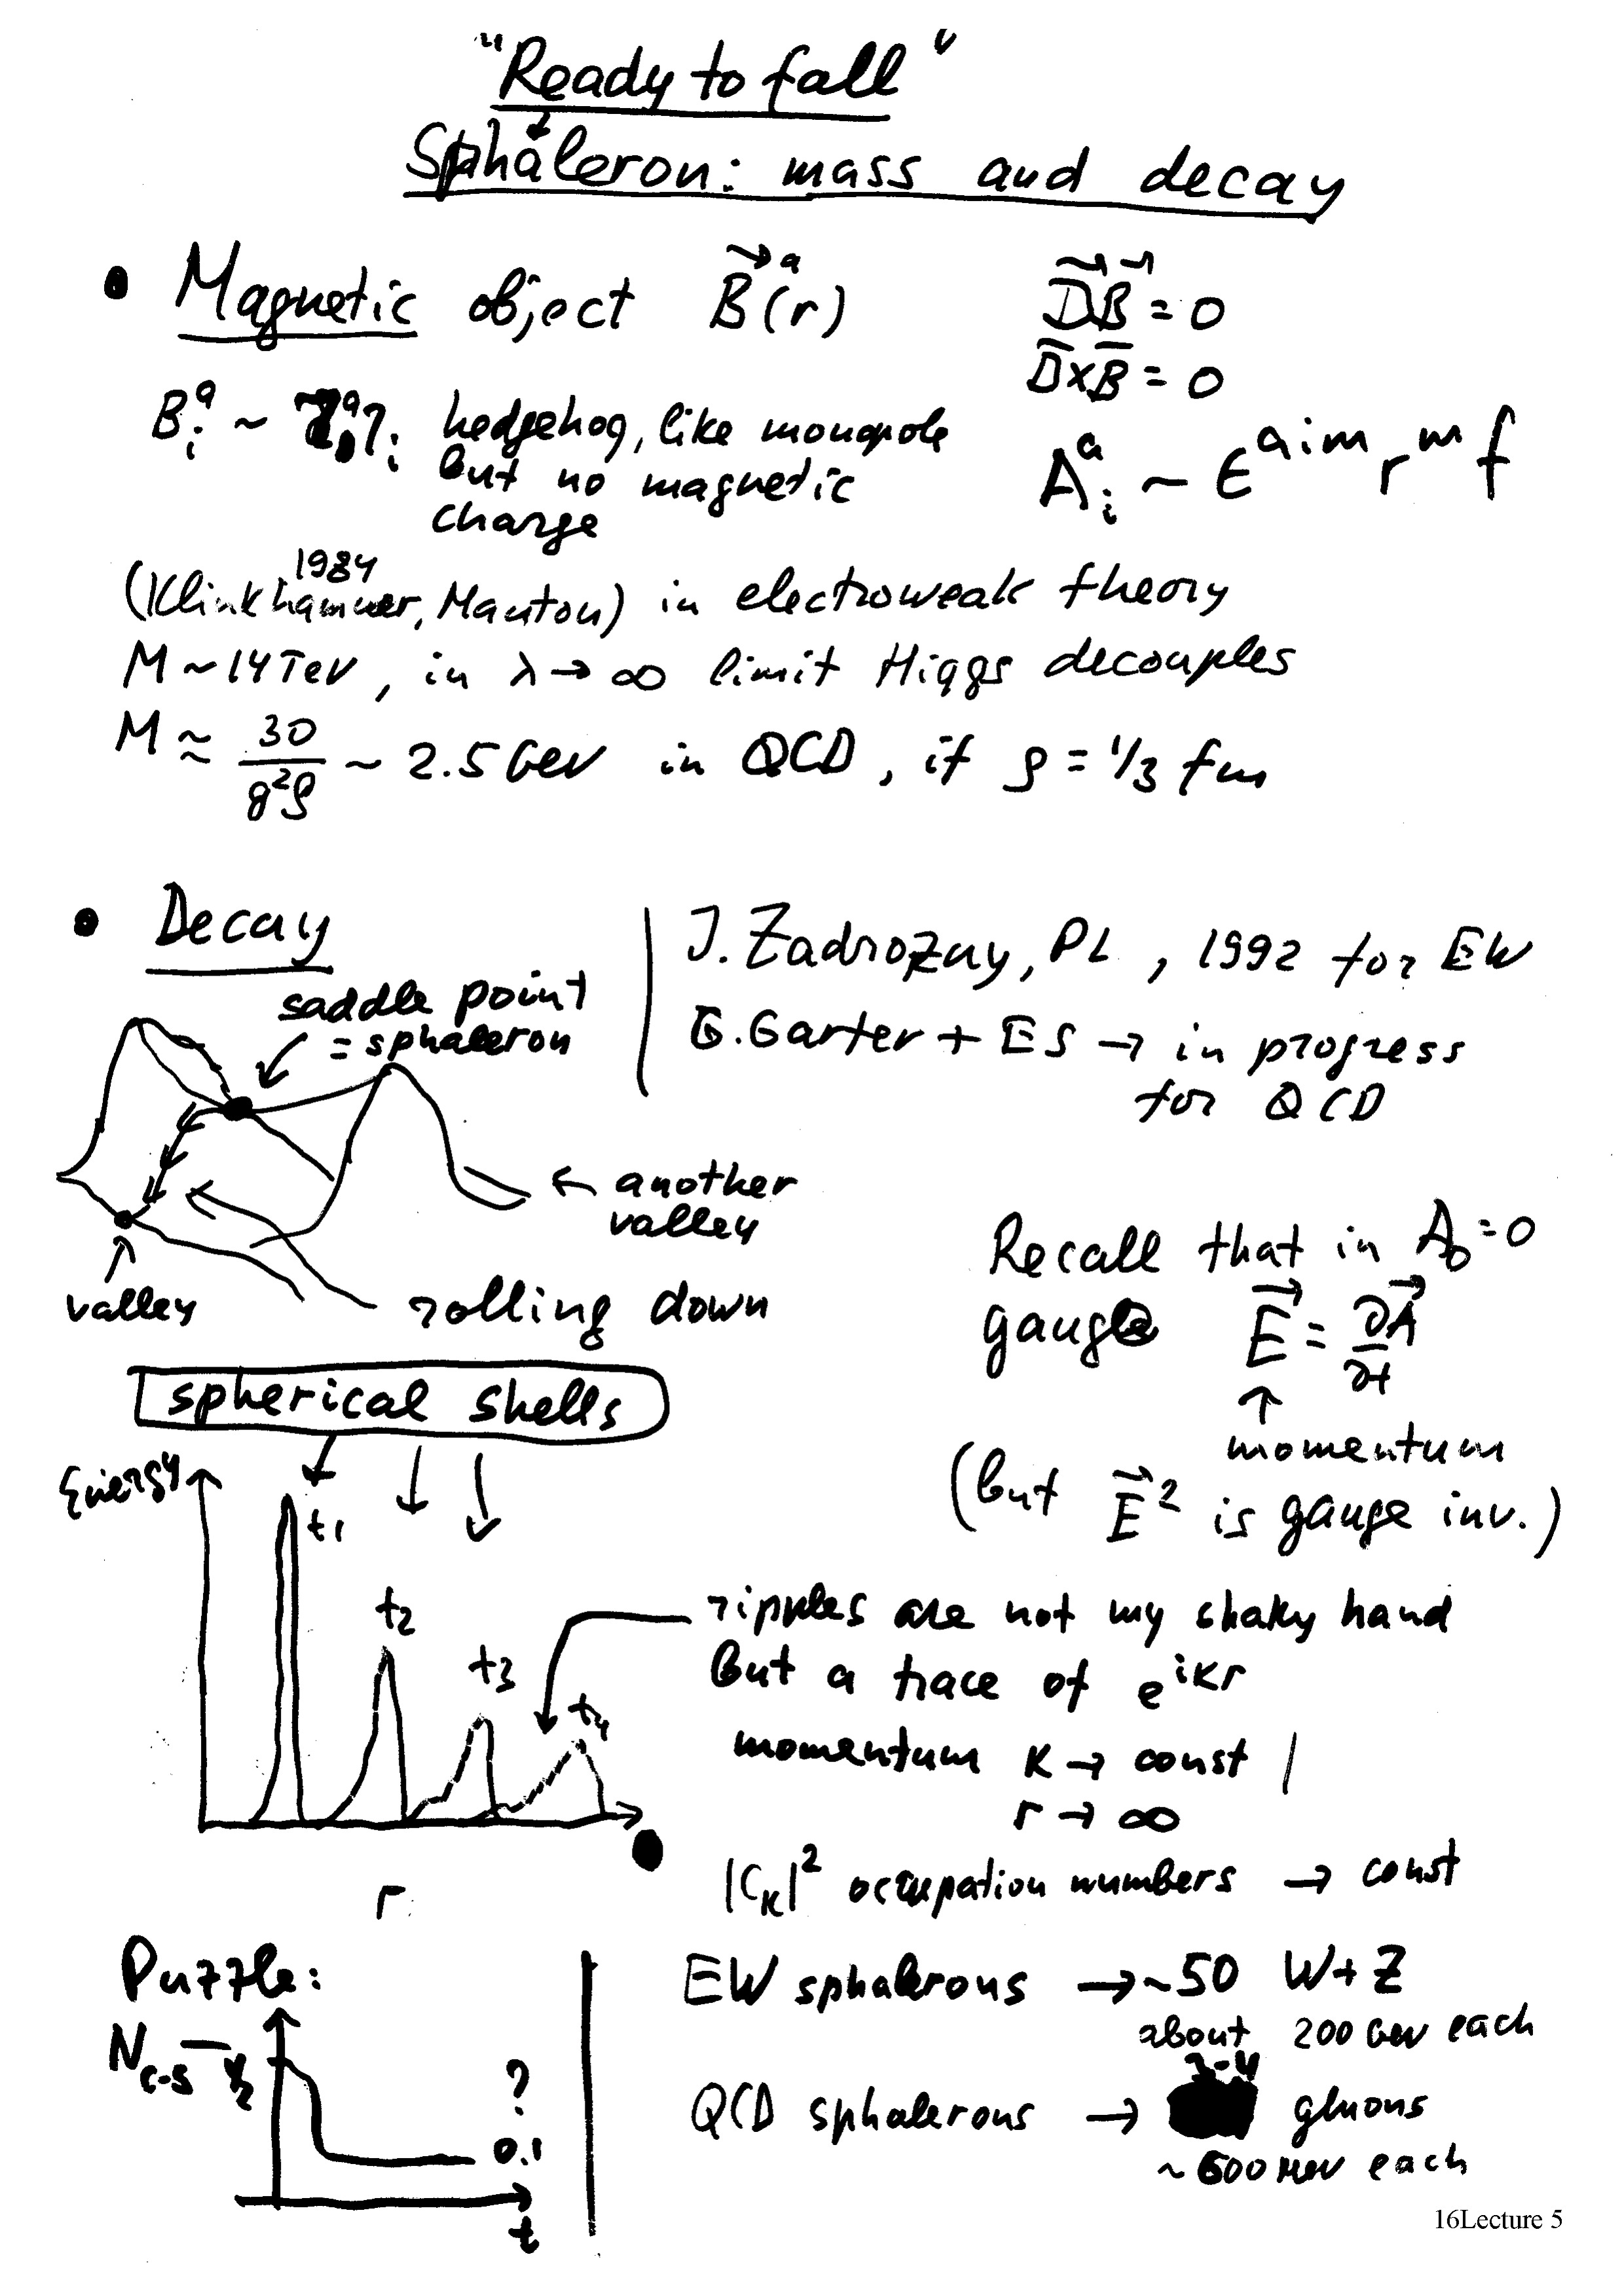 "Ready to fall"
Sphaleron: mass and decay
• Magnetic object B⃗ᵃ(r)
D⃗B⃗ = 0
D⃗×B⃗ = 0
Bᵢᵃ ~
hedgehog, like monopole
but no magnetic
charge
Aᵢᵃ ~ ϵᵃⁱᵐ rᵐ f
1984
(Klinkhammer, Manton) in electroweak theory
M ~ 14 TeV, in λ → ∞ limit Higgs decouples
M ≈ 30/g²ρ ~ 2.5 GeV in QCD, if ρ = 1/3 fm
• Decay
J. Zadrozny, PL, 1992 for EW
G. Garter + ES → in progress
for QCD
saddle point
= sphaleron
← another
valley
valley
rolling down
Recall that in A₀ = 0
gauge E⃗ = ∂A⃗/∂t
↑
momentum
(but E⃗² is gauge inv.)
spherical shells
Energy
t₁
t₂
t₃
t₄
r
ripples are not my shaky hand
but a trace of eⁱᴷʳ
momentum K → const |
r → ∞
|Cₖ|² occupation numbers → const
Puzzle:
N_C-S
1/2
?
0.1
t
EW sphalerons → ~50 W+Z
about 200 GeV each
QCD sphalerons → 3-4 gluons
~ 600 MeV each
16Lecture 5